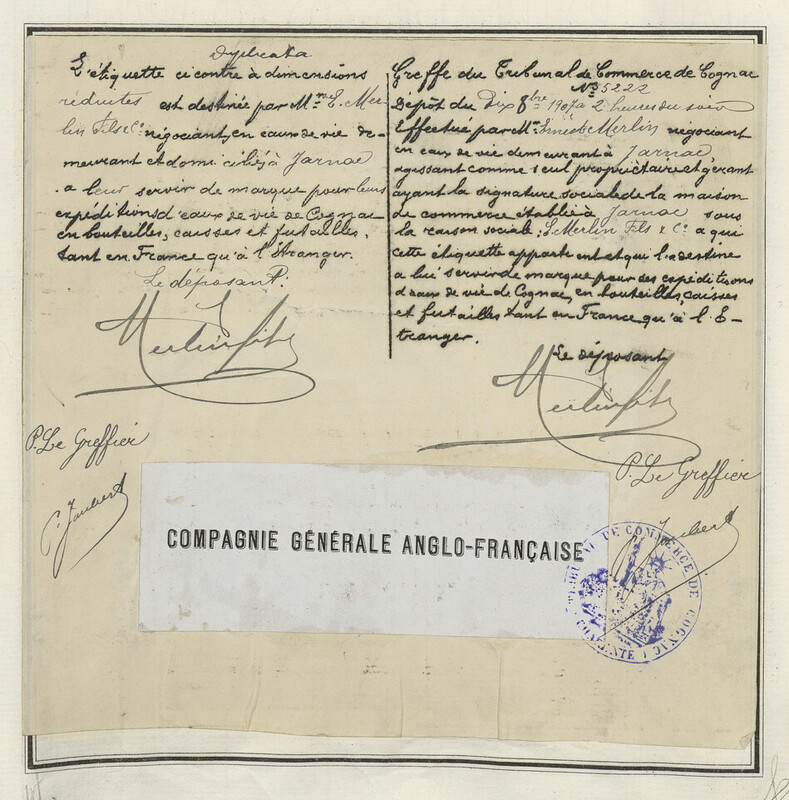 Duplicata
L'étiquette ci contre à dimensions
réduites est destinée par Mrs E. Mer-
lin Fils & Co négociant, en eaux de vie de-
meurant et domiciliés, à Jarnac
a leur servir de marque pour leurs
expéditions d'eaux de vie de Cognac
en bouteilles, caisses et futailles,
tant en France qu'à l'Étranger.
Le déposant.
Merlin fils
P. Le Greffier
Joubert
Greffe du Tribunal de Commerce de Cognac
No 5222
Dépôt du Dix 8bre 1907 à 2 heures du soir
Effectué par Mr Ernest Merlin négociant
en eaux de vie demeurant à Jarnac
agissant comme seul propriétaire et gérant
ayant la signature sociale de la maison
de commerce établie à Jarnac sous
la raison sociale: E. Merlin Fils & Co a qui
cette étiquette appartient et qui l'a destine
a lui servir de marque pour ses expéditions
d'eaux de vie de Cognac, en bouteilles, caisses
et futailles tant en France qu'à l'É-
tranger.
Le déposant
Merlin fils
P. Le Greffier
Joubert
COMPAGNIE GÉNÉRALE ANGLO-FRANÇAISE
TRIBUNAL DE COMMERCE DE COGNAC
CHARENTE